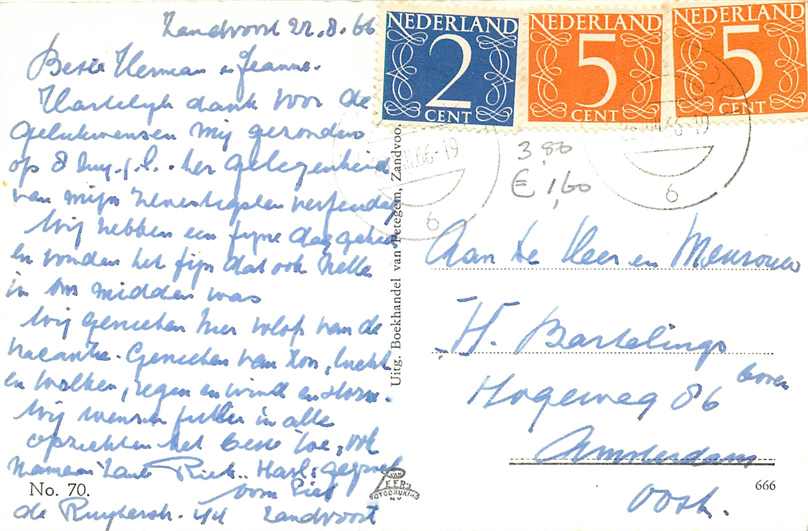 Zandvoort 22.8.66
Beste Herman en Jeanne.
Hartelijk dank voor de
gelukwensen mij gezonden
op 8 Aug. j.l. ter gelegenheid
van mijn zeventigsten verjaardag
Wij hebben een fijne dag gehad
en vonden het fijn dat ook Nelle
in ons midden was
Wij genieten hier volop van de
vacantie. Genieten van zon, lucht
en wolken, regen en wind en storm.
Wij wensen jullie in alle
opzichten het beste toe, ook
namens Riet. Hart. gegroet
van Piet
de Ruyterstr. Zandvoort
No. 70.
Uitg. Boekhandel van Petegem, Zandvoo
VAN
FOTODRUK
NEDERLAND
2
CENT
NEDERLAND
5
CENT
NEDERLAND
5
CENT
.66-19
6
66-19
6
3,80
€ 1,60
Aan de Heer en Mevrouw
H. Bartelings
Hogeweg 86 boven
Amsterdam
Oost.
666